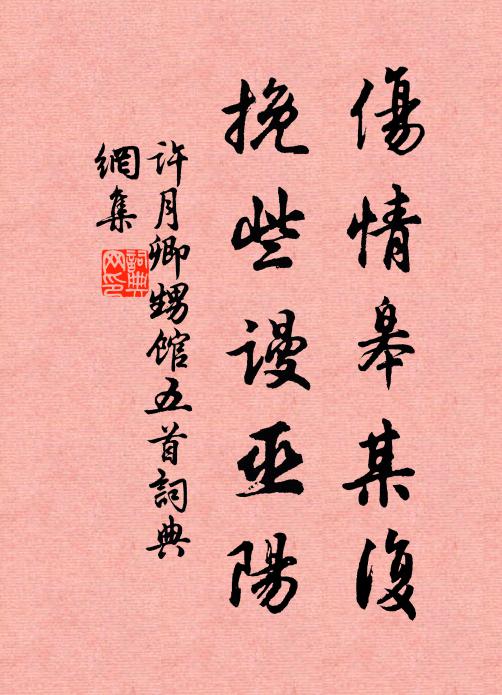 傷情皋某復
挽些謾巫陽
許月卿甥館五首詞典
網集
詞典
网印